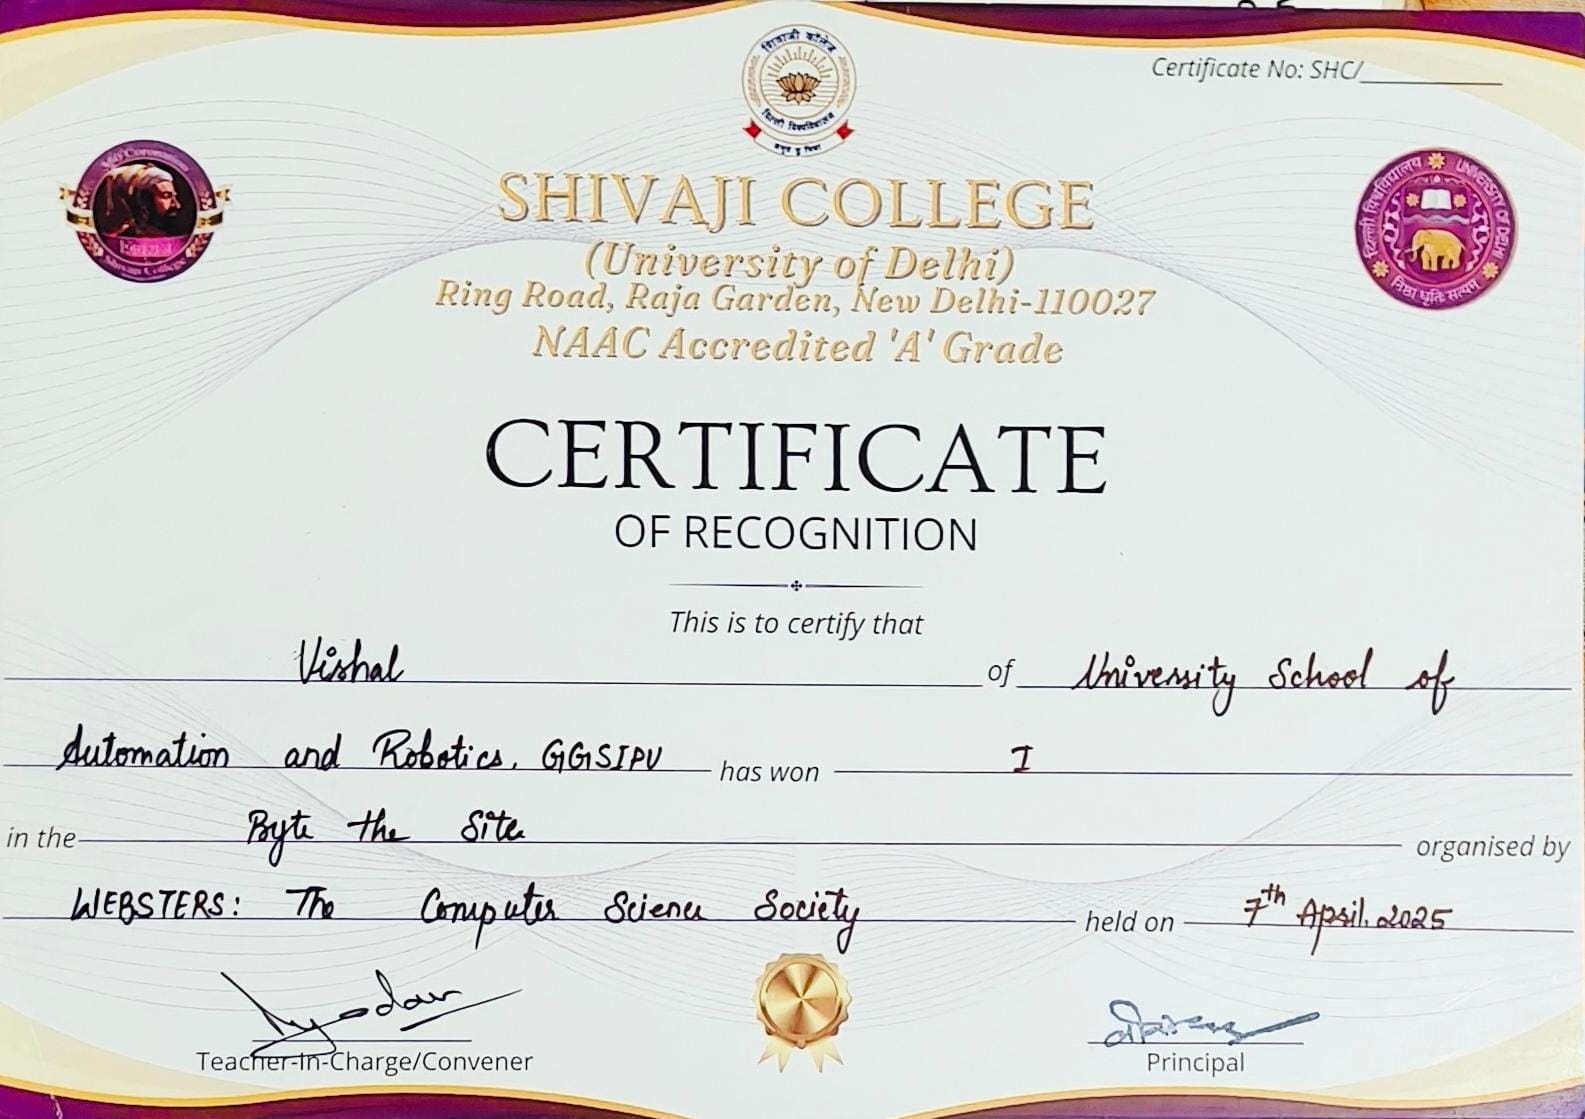 शिवाजी कॉलेज
दिल्ली विश्वविद्यालय
Certificate No: SHC/
SHIVAJI COLLEGE
(University of Delhi)
Ring Road, Raja Garden, New Delhi-110027
NAAC Accredited 'A' Grade
Shivaji College
दिल्ली विश्वविद्यालय UNIVERSITY OF DELHI
निष्ठा धृतिः सत्यम्
CERTIFICATE
OF RECOGNITION
This is to certify that
Vishal of University School of
Automation and Robotics, GGSIPU has won I
in the Byte the Site organised by
WEBSTERS: The Computer Science Society held on 7th April, 2025
Teacher-In-Charge/Convener
Principal